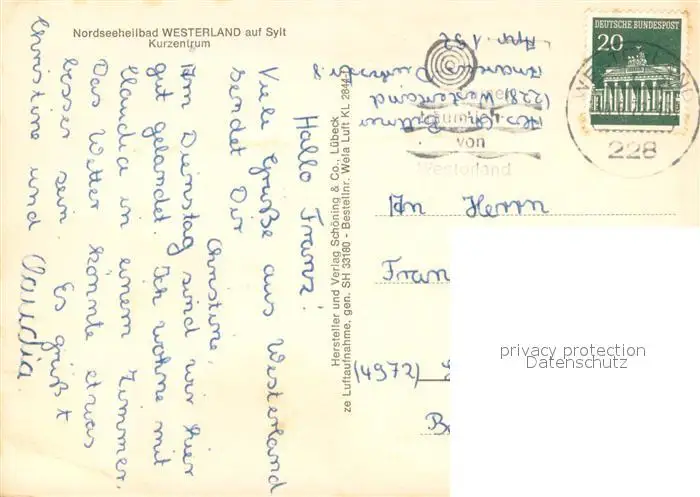 Nordseeheilbad WESTERLAND auf Sylt
Kurzentrum
Hallo Franz!
Viele Grüße aus Westerland
sendet Dir
Christine.
Am Dienstag sind wir hier
gut gelandet. Ich wohne mit
Claudia in einem Zimmer.
Das Wetter könnte etwas
besser sein. Es grüßt
Christine und Claudia
Hersteller und Verlag Schöning & Co., Lübeck
ze Luftaufnahme, gen. SH 33180 - Bestellnr. Wela Luft KL 2844
(228) Westerland
App. 132
DEUTSCHE BUNDESPOST
20
von
Westerland
228
An Herrn
Fran
(4972)
privacy protection
Datenschutz